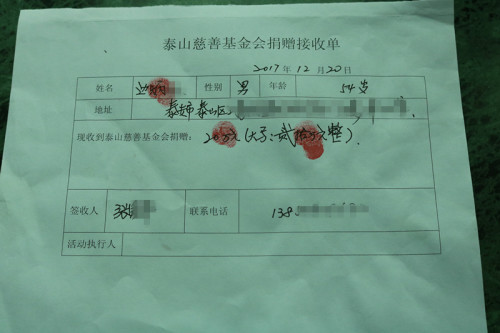 泰山慈善基金会捐赠接收单
2017年12月20日
姓名 性别 男 年龄 54岁
地址 泰安市泰山区
现收到泰山慈善基金会捐赠：20万元（大写：贰拾万元整）
签收人 联系电话 138
活动执行人